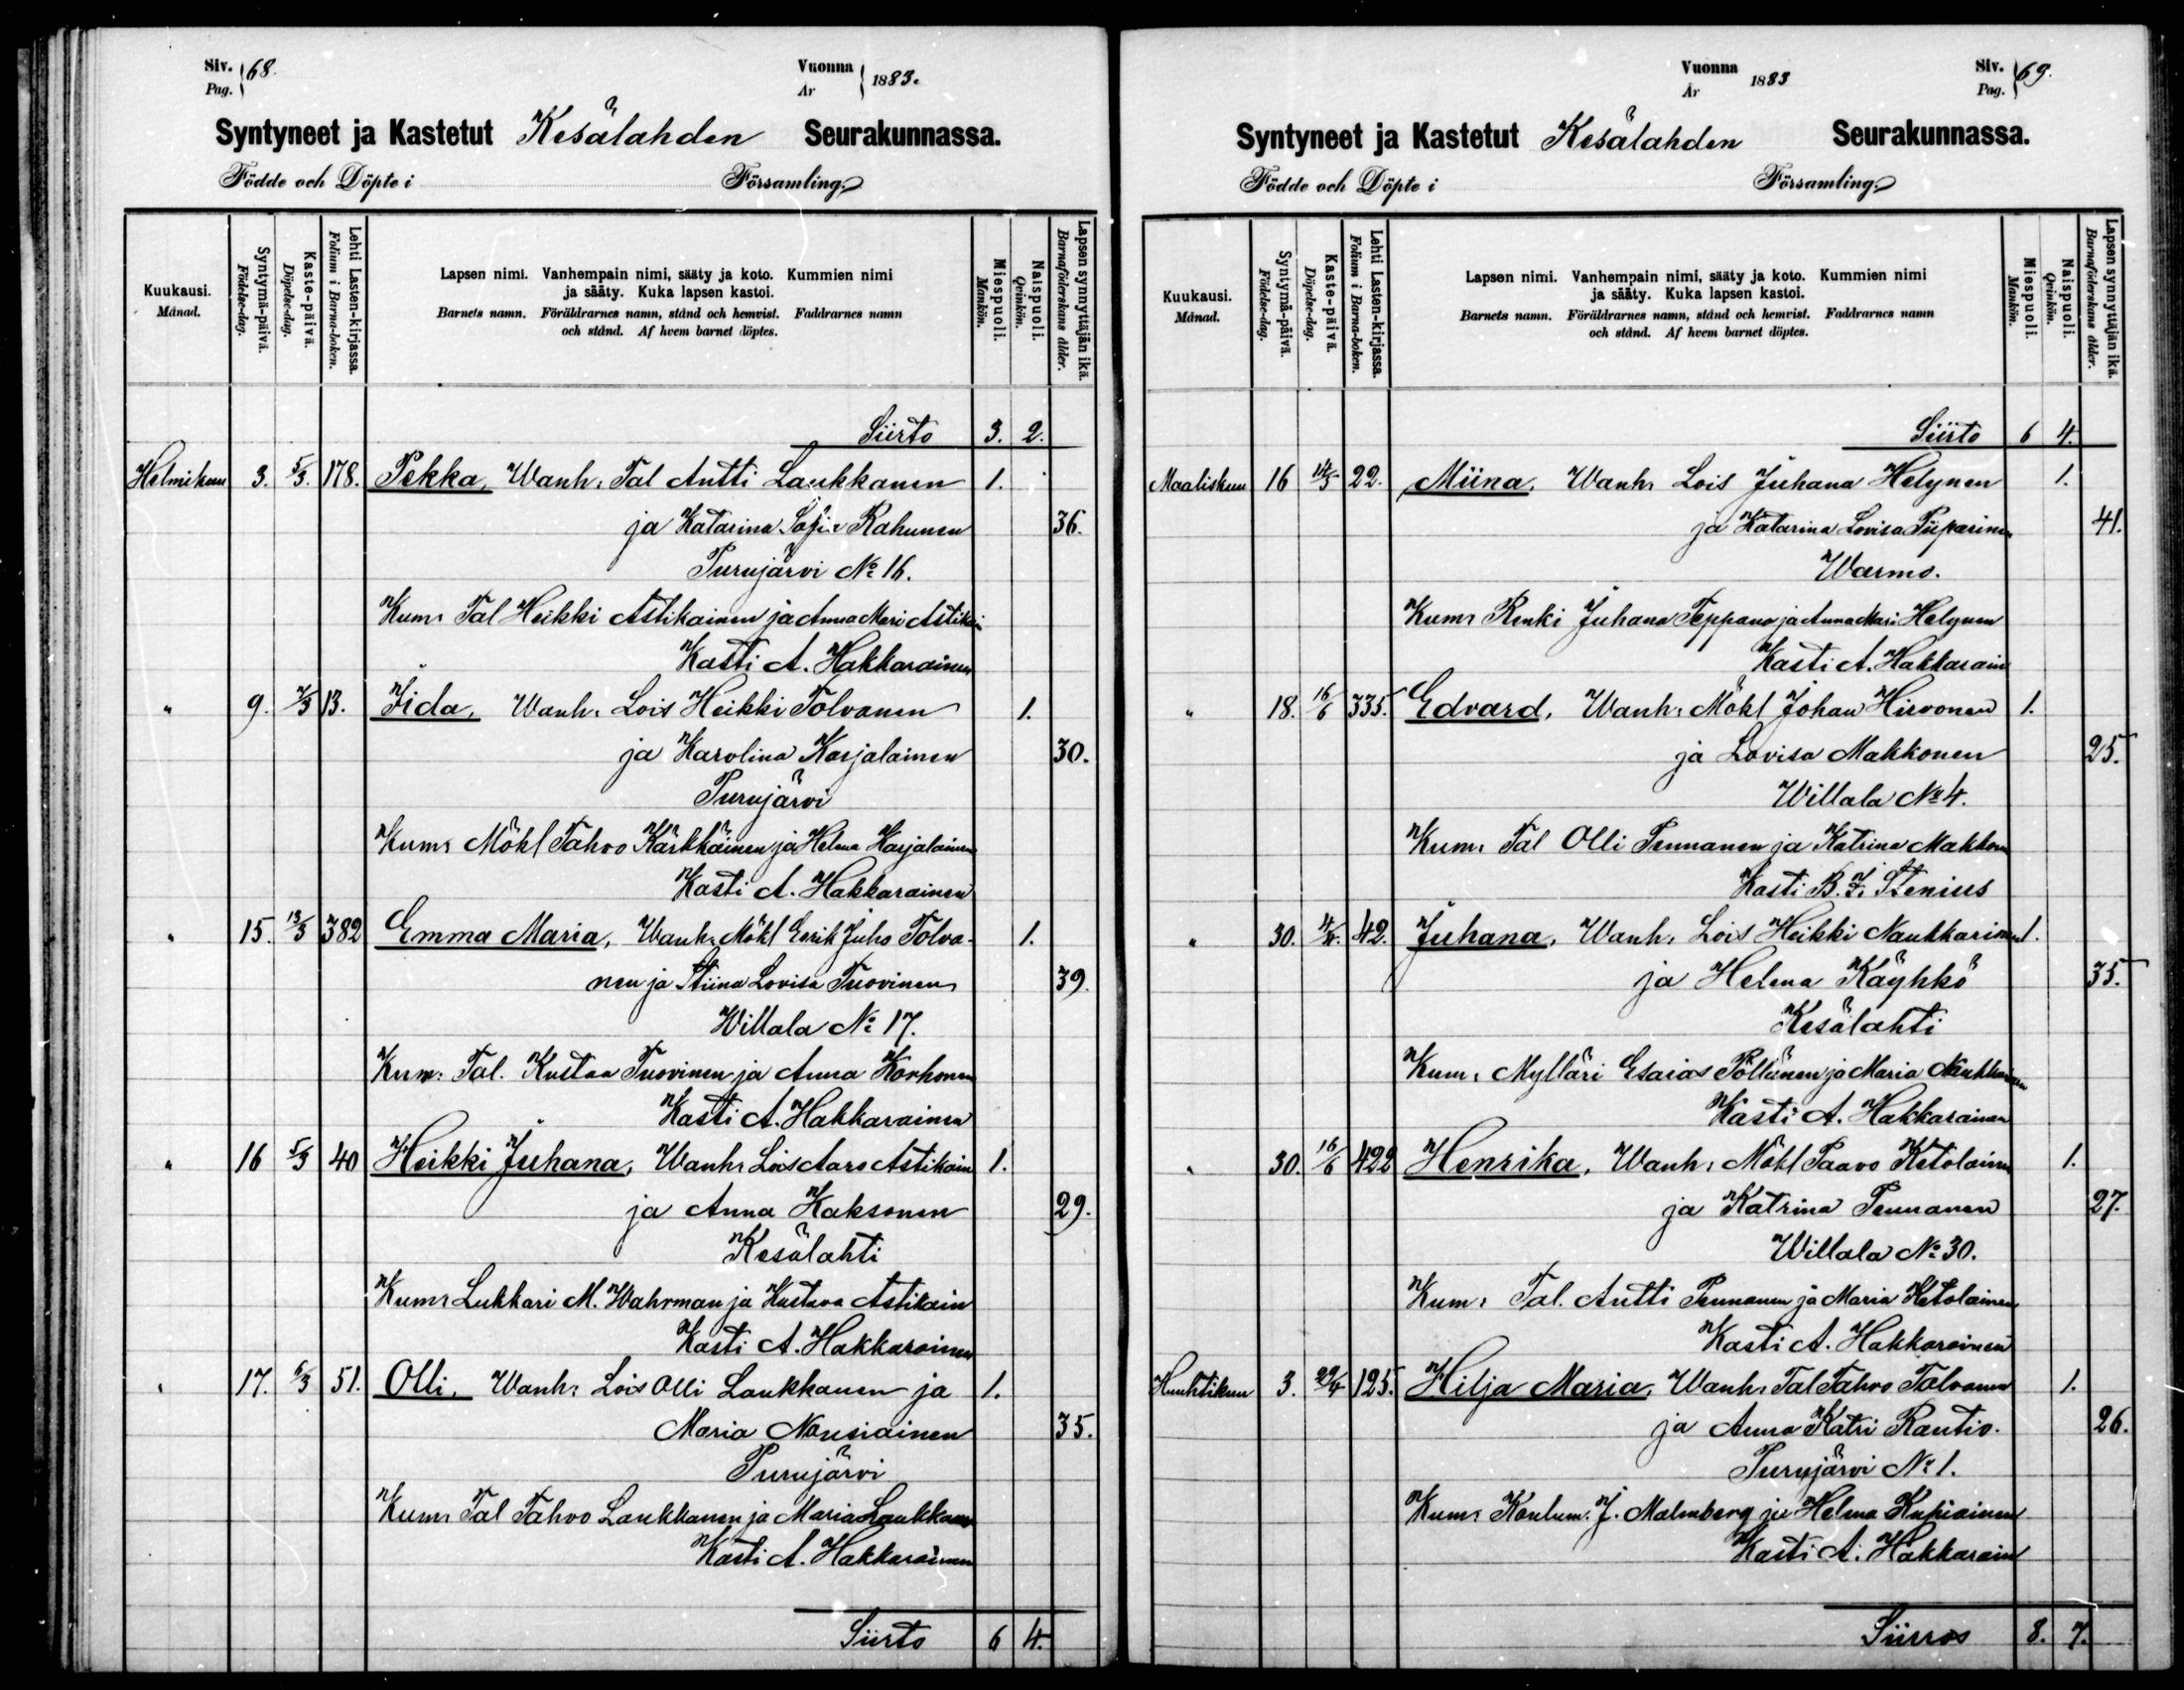 Siv. Pag. } 68.
Vuonna År } 1883.
Syntyneet ja Kastetut Kesälahden Seurakunnassa.
Födde och Döpte i Församling.
Kuukausi. Månad.
Syntymä-päivä. Födelse-dag.
Kaste-päivä. Döpelse-dag.
Lehti Lasten-kirjassa. Folium i Barna-boken.
Lapsen nimi. Vanhempain nimi, sääty ja koto. Kummien nimi
ja sääty. Kuka lapsen kastoi.
Barnets namn. Föräldrarnes namn, stånd och hemvist. Faddrarnes namn
och stånd. Af hvem barnet döptes.
Miespuoli. Mankön.
Naispuoli. Qvinkön.
Lapsen synnyttäjän ikä. Barnaföderskans ålder.
Siirto 3. 2.
Helmikuu 3. 5/3. 178. Pekka, Wanh: Tal Antti Laukkanen 1.
ja Katarina Sofia Rahunen 36.
Purujärvi No 16.
Kum: Tal Heikki Astikainen ja Anna Mari Astikai
Kasti A. Hakkarainen
" 9. 7/3 13. Iida, Wanh: Lois Heikki Tolvanen 1.
ja Karolina Karjalainen 30.
Purujärvi
Kum: Mökl Tahvo Kärkkäinen ja Helena Karjalainen
Kasti A. Hakkarainen
" 15. 13/3 382 Emma Maria, Wanh: Mökl Eerik Juho Tolva- 1.
nen ja Stiina Lovisa Tuovinen 39.
Villala No 17.
Kum: Tal. Kustaa Tuovinen ja Anna Korhonen
Kasti A. Hakkarainen
" 16 5/3 40 Heikki Juhana, Wanh: Lois Aaro Astikain 1.
ja Anna Haksonen 29.
Kesälahti
Kum: Lukkari M. Wahrman ja Kustava Astikain
Kasti A. Hakkarainen
" 17. 6/3 51. Olli, Wanh: Lois Olli Laukkanen ja 1.
Maria Nousiainen 35.
Purujärvi
Kum: Tal Tahvo Laukkanen ja Maria Laukkanen
Kasti A. Hakkarainen
Siirto 6 4.
Vuonna År 1883
Siv. Pag. } 69.
Syntyneet ja Kastetut Kesälahden Seurakunnassa.
Födde och Döpte i Församling.
Kuukausi. Månad.
Syntymä-päivä. Födelse-dag.
Kaste-päivä. Döpelse-dag.
Lehti Lasten-kirjassa. Folium i Barna-boken.
Lapsen nimi. Vanhempain nimi, sääty ja koto. Kummien nimi
ja sääty. Kuka lapsen kastoi.
Barnets namn. Föräldrarnes namn, stånd och hemvist. Faddrarnes namn
och stånd. Af hvem barnet döptes.
Miespuoli. Mankön.
Naispuoli. Qvinkön.
Lapsen synnyttäjän ikä. Barnaföderskans ålder.
Siirto 6 4.
Maaliskuu 16 22. Miina, Wanh: Lois Juhana Helynen 1.
ja Katarina Lovisa Piiparinen 41.
Warmo.
Kum: Renki Juhana Teppana ja Anna Mari Helynen
Kasti A. Hakkarain
" 18. 16/6 335. Edvard, Wanh: Mökl Johan Hirvonen 1.
ja Lovisa Makkonen 25.
Villala No 4.
Kum: Tal Olli Pennanen ja Katrina Makkon
Kasti B. F. Stenius
" 30. 4/4. 42. Juhana, Wanh: Lois Heikki Naukkarinen 1.
ja Helena Käyhkö 35.
Kesälahti
Kum: Mylläri Esaias Pöllänen ja Maria Naukkarinen
Kasti A. Hakkarainen
" 30. 16/6 422 Henrika, Wanh: Mökl Paavo Ketolainen 1.
ja Katrina Pennanen 27.
Villala No 30.
Kum: Tal. Antti Pennanen ja Maria Ketolainen
Kasti A. Hakkarainen
Huuhtikuu 3. 29/4 125. Hilja Maria, Wanh: Tal Tahvo Tolvanen 1.
ja Anna Katri Rautio. 26.
Purujärvi No 1.
Kum: Koulum. J. Malmberg ja Helena Kupiainen
Kasti A. Hakkarain
Siirros 8. 7.